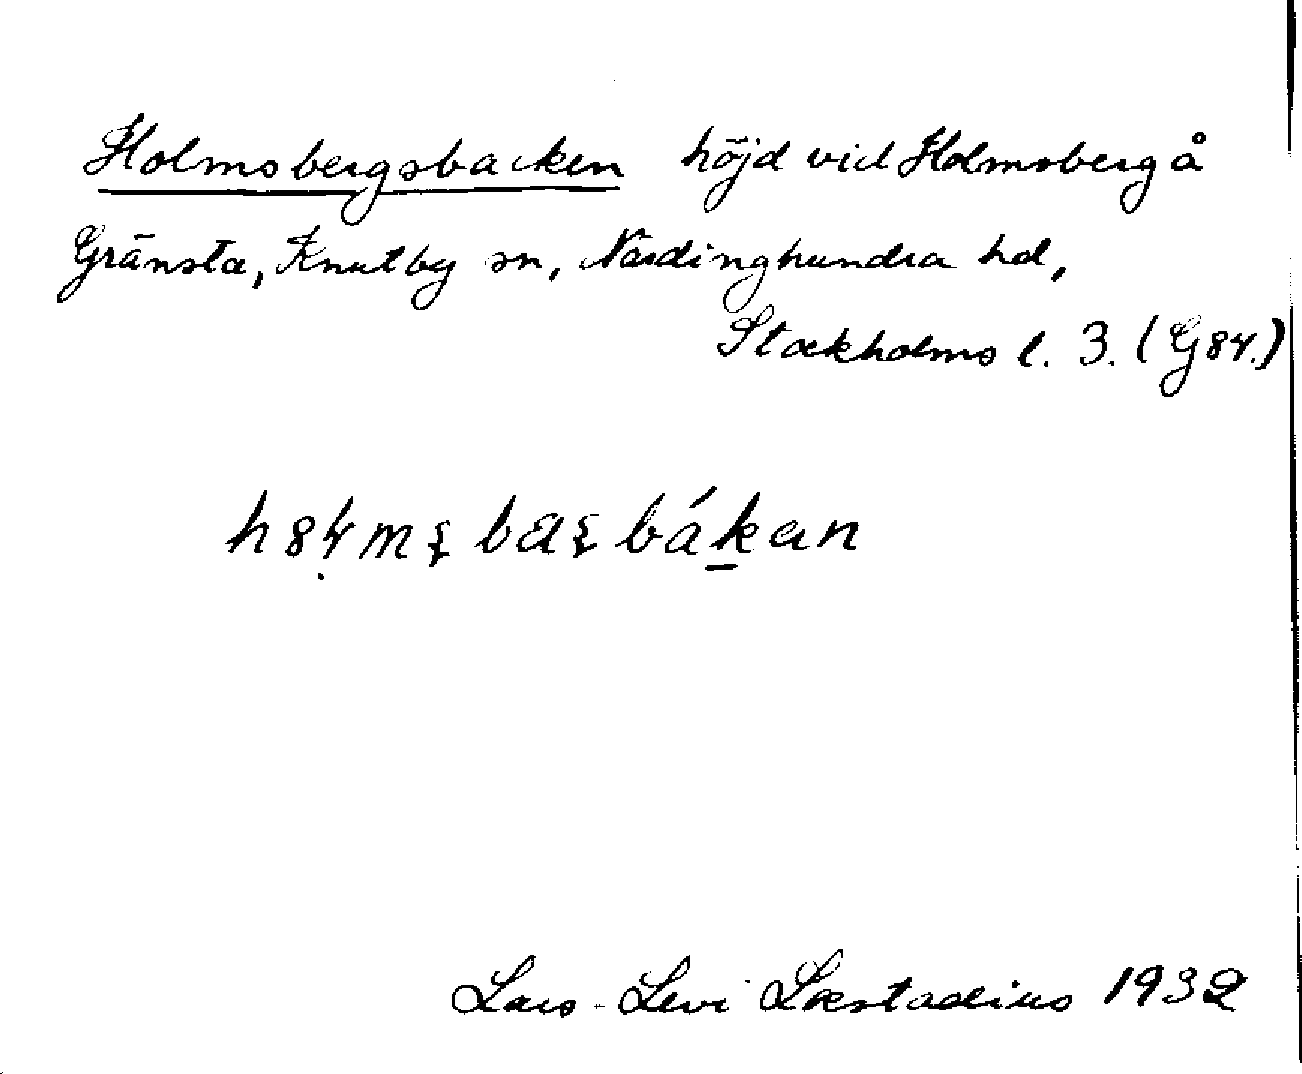 Holmsbergsbacken höjd vid Holmsberg å
Gränsta, Knutby sn, Närdinghundra hd,
Stockholms l. 3. (G84.)
Lars-Levi Læstadius 1932